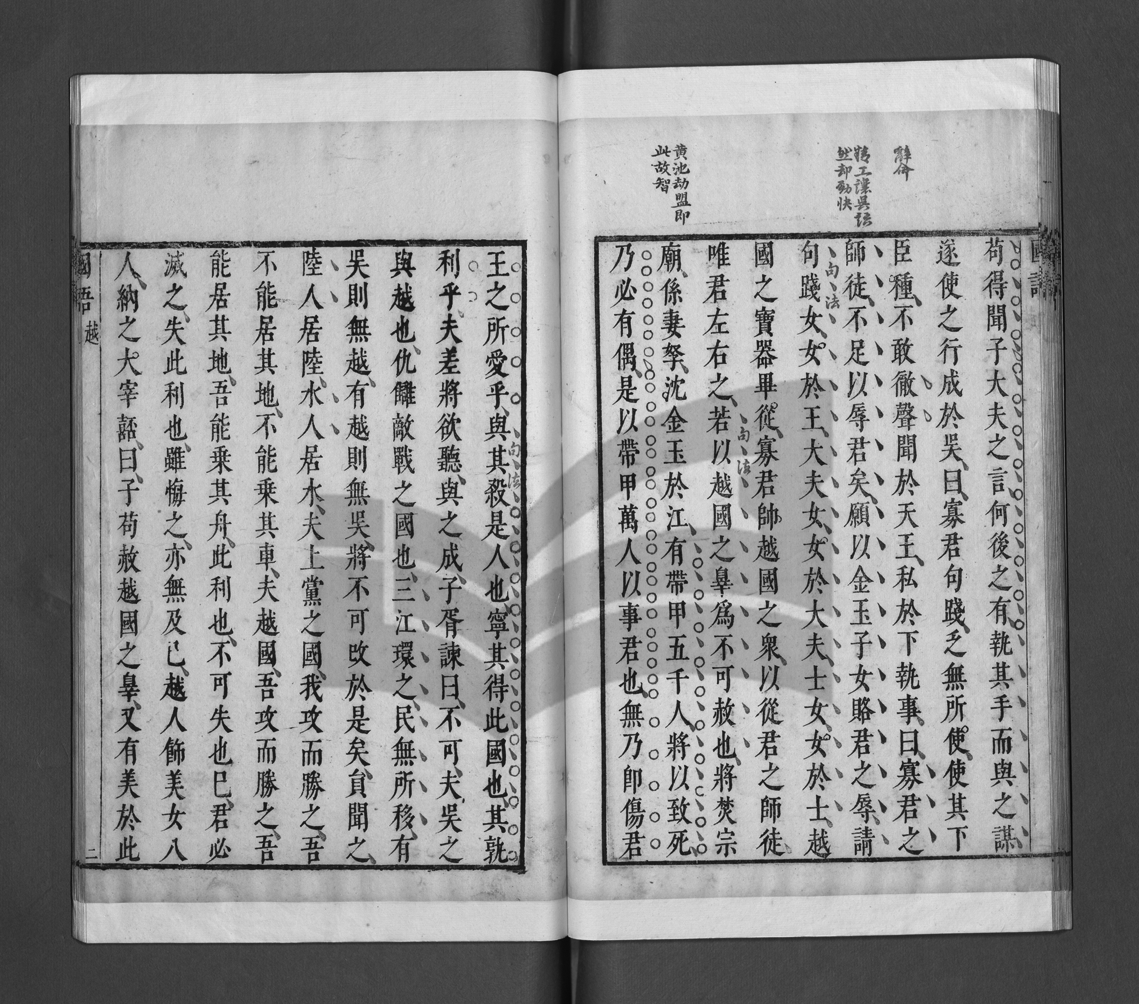 國語
辭俏
精工讓吳語
然却勁快
黄池劫盟即
此故智
苟得聞子大夫之言何後之有執其手而與之謀
遂使之行成於吳曰寡君句踐乏無所使使其下
臣種不敢徹聲聞於天王私於下執事曰寡君之
師徒不足以辱君矣願以金玉子女賂君之辱請
句法
句踐女女於王大夫女女於大夫士女女於士越
國之寶器畢從寡君帥越國之衆以從君之師徒
句法
唯君左右之若以越國之辠爲不可赦也將焚宗
廟係妻孥沈金玉於江有帶甲五千人將以致死
乃必有偶是以帶甲萬人以事君也無乃卽傷君
王之所愛乎與其殺是人也寧其得此國也其孰
句法
利乎夫差將欲聽與之成子胥諫曰不可夫吳之
與越也仇讎敵戰之國也三江環之民無所移有
吳則無越有越則無吳將不可攺於是矣貟聞之
陸人居陸水人居水夫上黨之國我攻而勝之吾
不能居其地不能乘其車夫越國吾攻而勝之吾
能居其地吾能乘其舟此利也不可失也已君必
滅之失此利也雖悔之亦無及已越人飾美女八
人納之大宰嚭曰子苟赦越國之辠又有美於此
國語 越 二